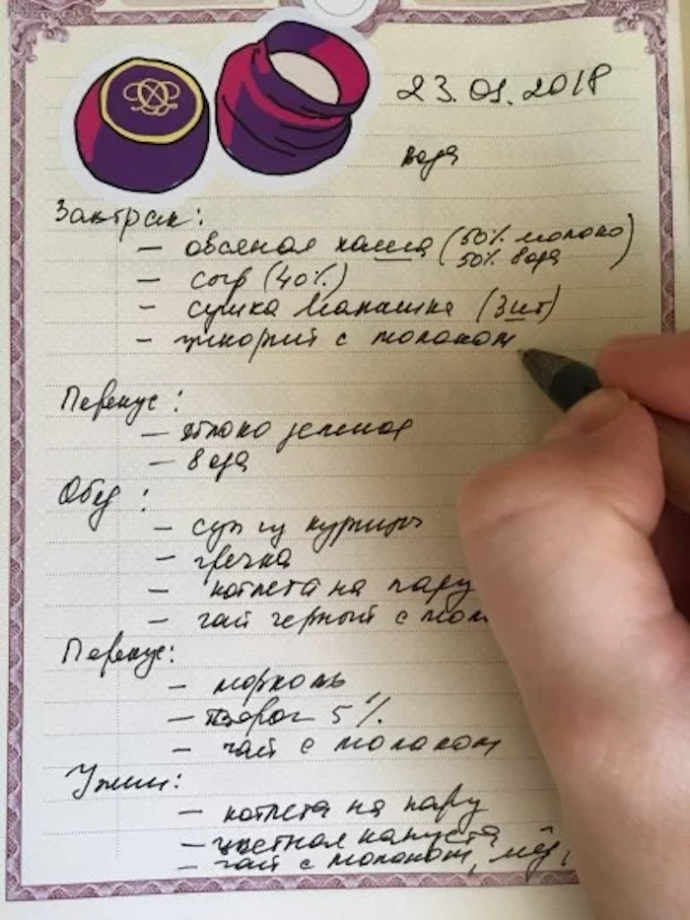 23.01.2018
вода
Завтрак:
— овсяная кашка (50% молоко
50% вода)
— сыр (40%)
— сушка Малышка (3шт)
— цикорий с молоком
Перекус:
— яблоко зеленое
— вода
Обед:
— суп из курицы
— гречка
— котлета на пару
— чай черный с мол
Перекус:
— морковь
— творог 5%
— чай с молоком
Ужин:
— котлета на пару
— цветная капуста
— чай с молоком, мёд,